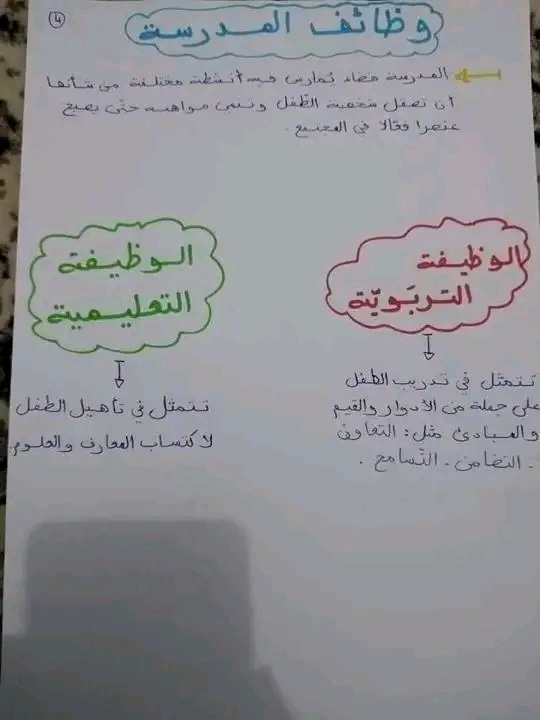 4
وظائف المدرسة
المدرسة فضاء يُمارس فيه أنشطة مختلفة من شأنها
أن تصقل شخصية الطّفل وتنمي مواهبه حتّى يصبح
عنصرا فعّالا في المجتمع.
الوظيفة
التربَويّة
تتمثل في تدريب الطفل
على جملة من الأدوار والقيم
والمبادئ مثل: التعاون
- التضامن - التّسامح.
الوظيفة
التعليمية
تتمثل في تأهيل الطفل
لاكتساب المعارف والعلوم.